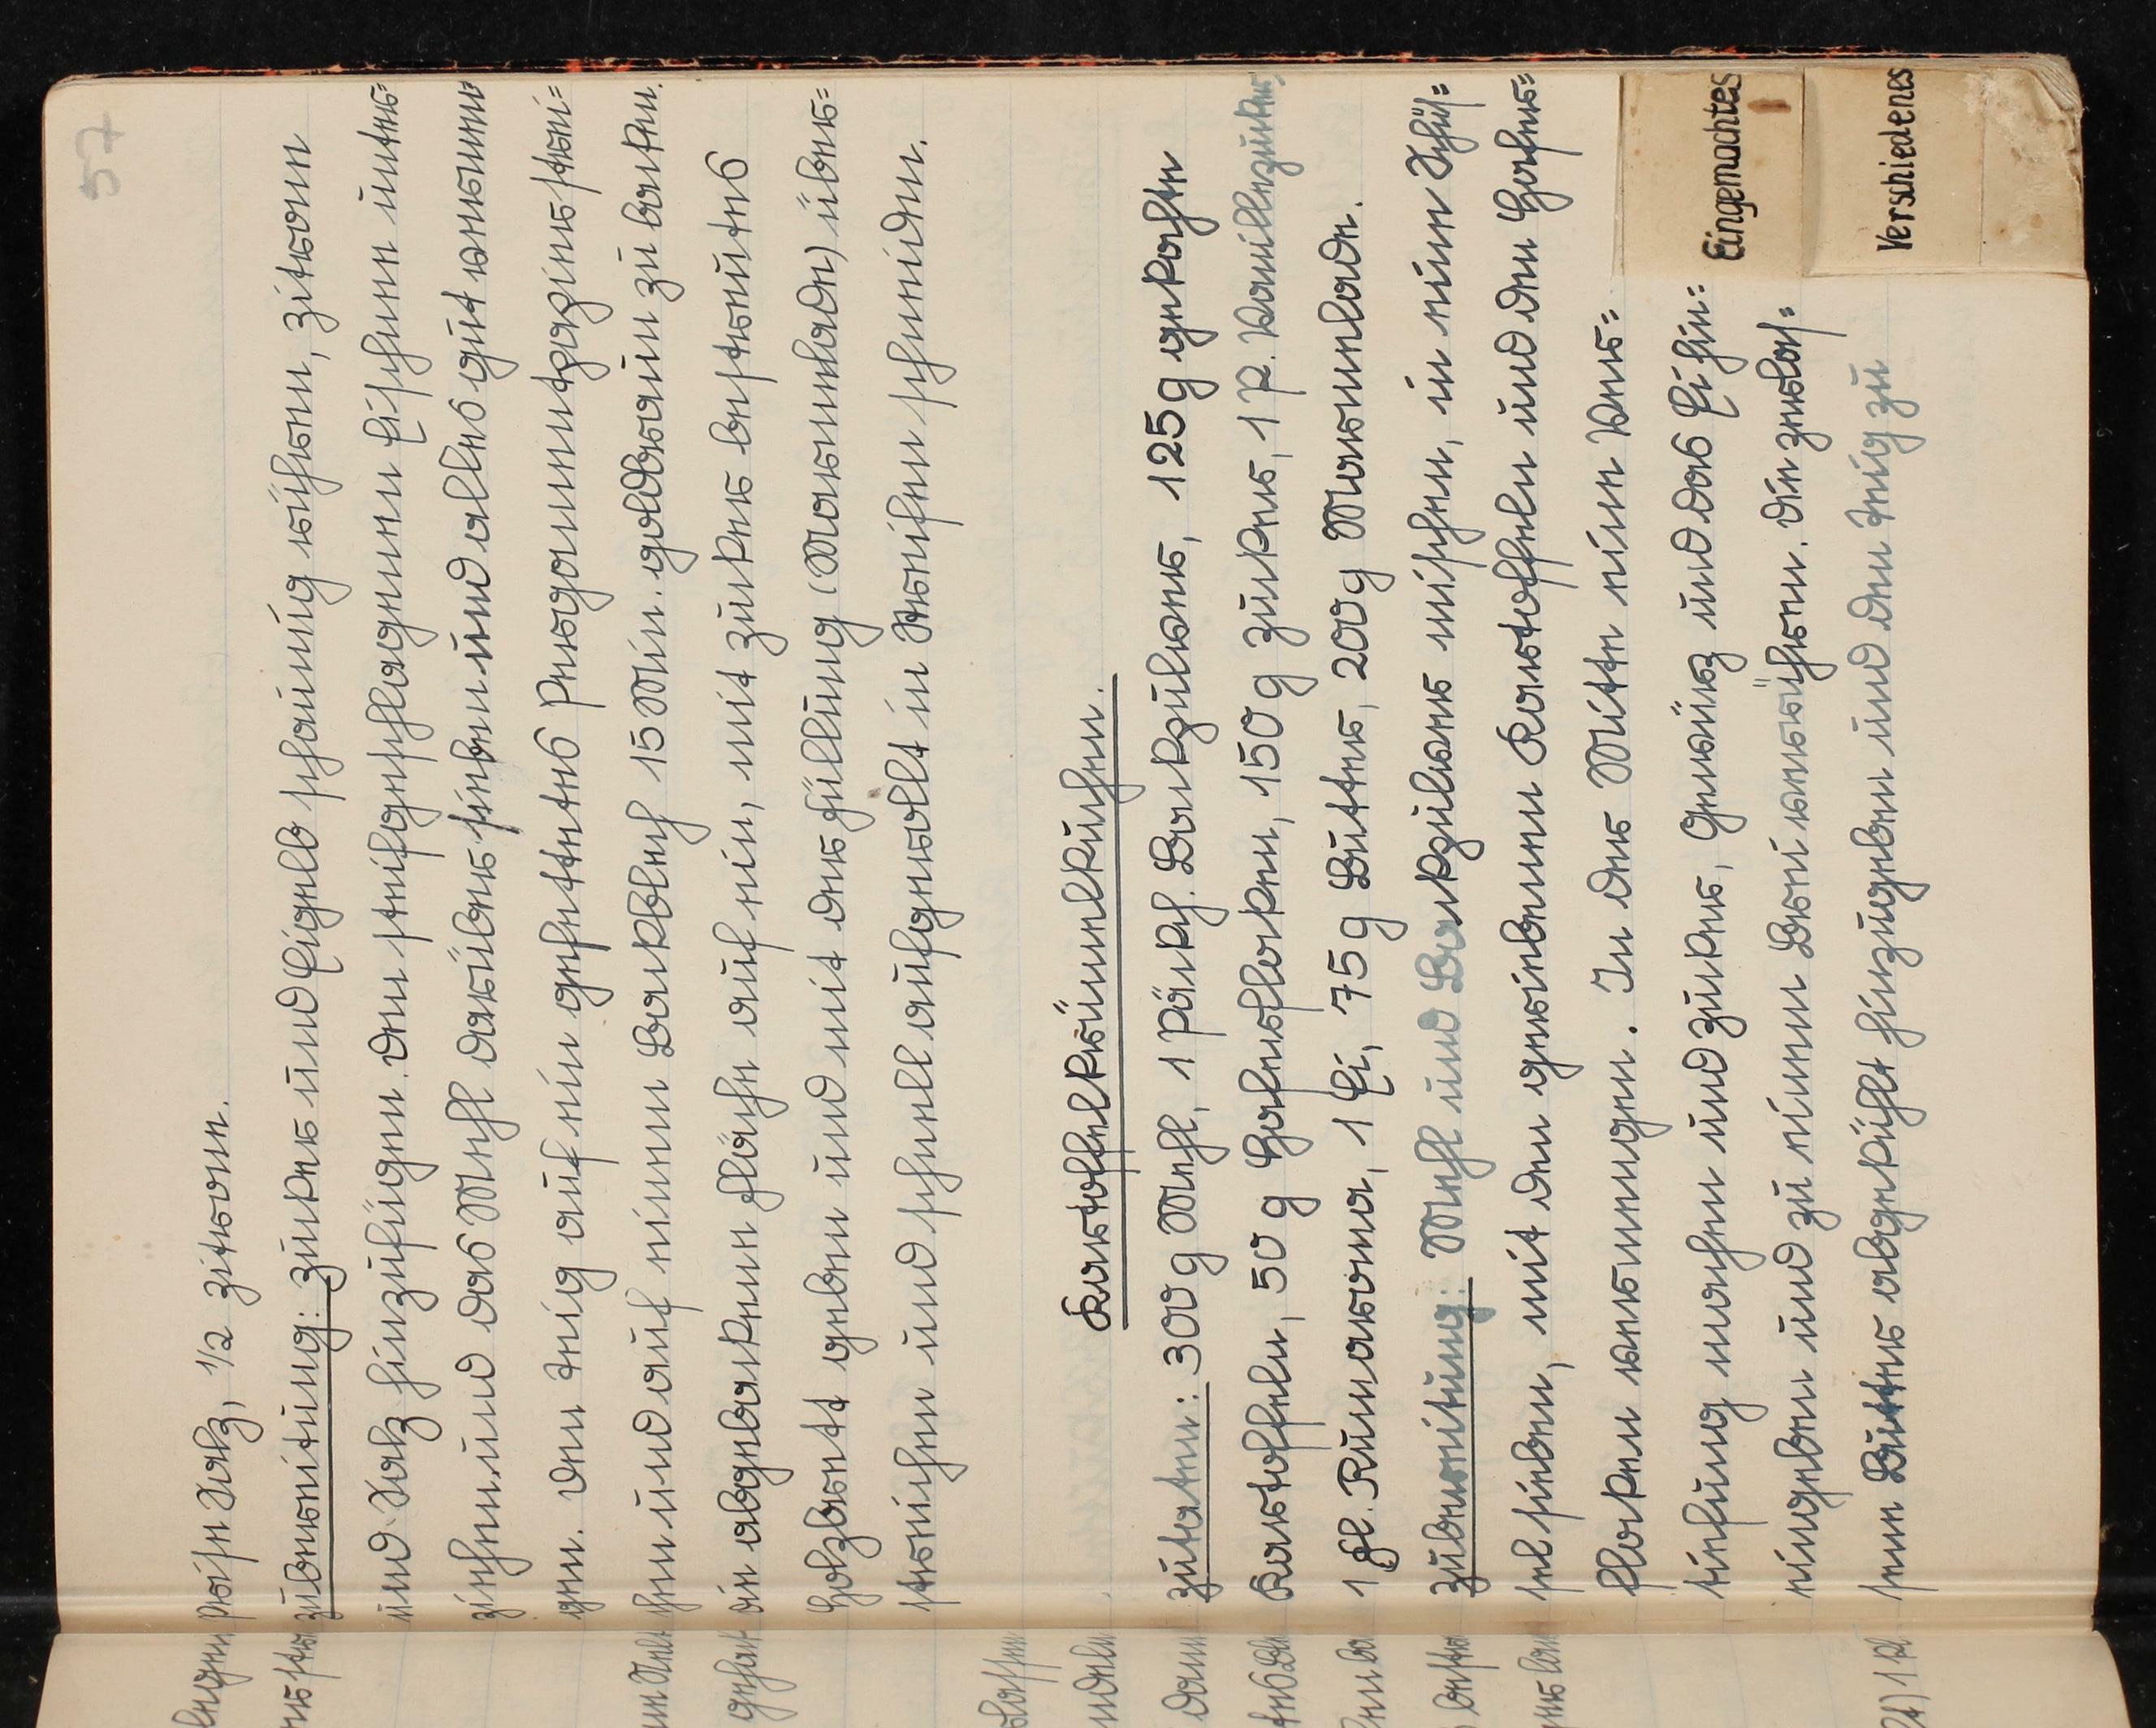 57
prise Salz, 1/2 Zitron.
Zubereitung: Zucker und Eigelb schaumig rühren, Zitrone
und Salz hinzufügen. Den steifgeschlagenen Eischnee unter=
ziehen und das Mehl darüber sieben und alles gut vermen=
gen. Den Teig auf ein gefettetes Pergamentpapier strei=
chen und auf einem Backblech 15 Min. goldbraun zu backen.
Die abgebackene Fläche auf ein, mit Zucker bestreutes
Holzbrett geben und mit der Füllung (Marmelade) über=
streichen und schnell aufgerollt in Streifen schneiden.
Kartoffelkrümelkuchen.
Zutaten: 300 g Mehl, 1 Päckch. Backpulver, 125 g gekochte
Kartoffeln, 50 g Haferflocken, 150 g Zucker, 1 P. Vanillezucker,
1 Fl. Rumaroma, 1 Ei, 75 g Butter, 200 g Marmelade.
Zubereitung: Mehl und Backpulver mischen, in eine Schüs=
sel sieben, mit den geriebenen Kartoffeln und den Hafer=
flocken vermengen. In der Mitte eine Ver=
tiefung machen und Zucker, Gewürz und das Ei hin=
eingeben und zu einem Brei verrühren. Die zerlas=
sene Butter abgekühlt hinzugeben und den Teig zu
Eingemachtes
Verschiedenes